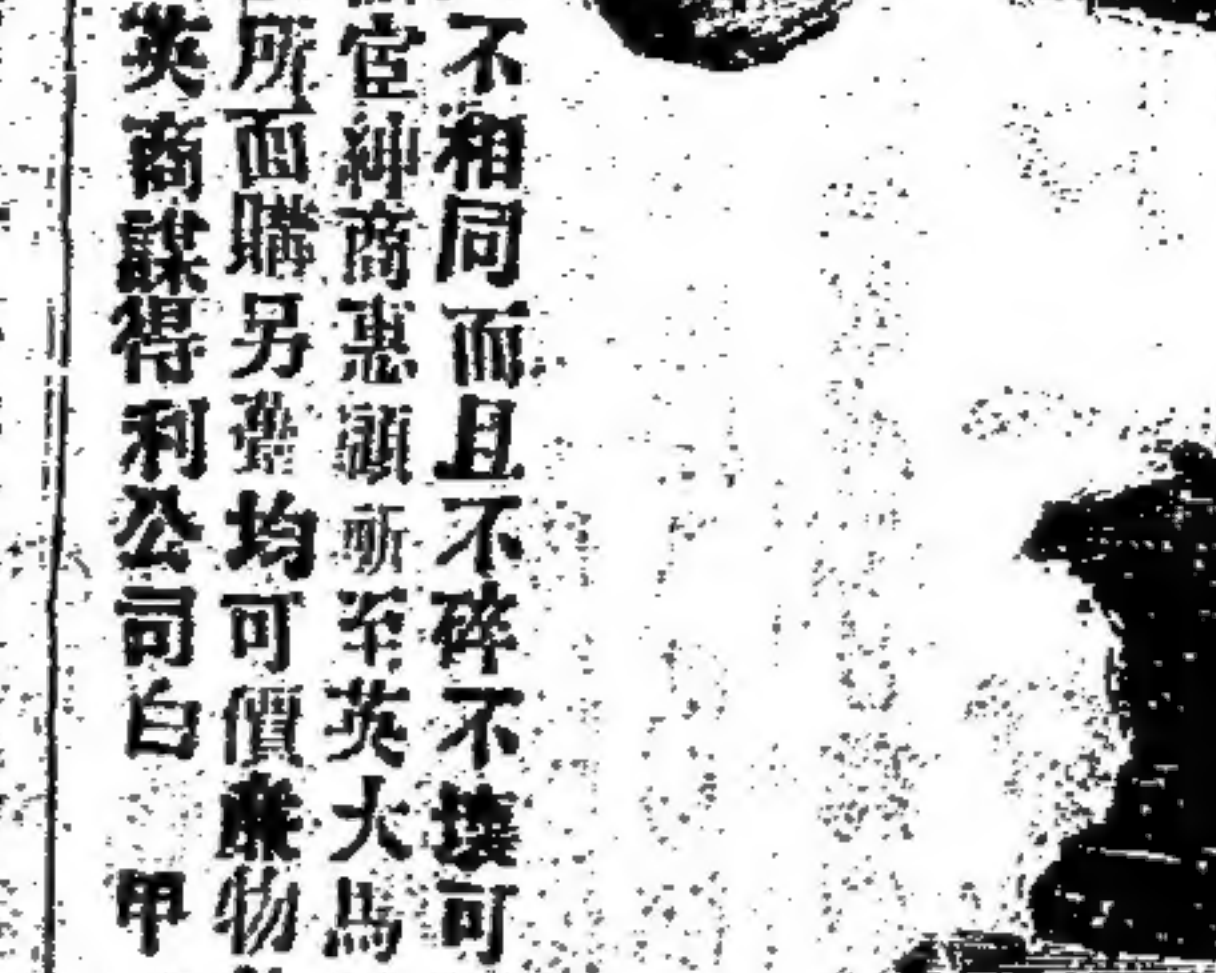 不相同而且不碎不壞可
宦紳商惠顧祈至英大馬
所面購另躉均可價廉物
英商謀得利公司白 甲